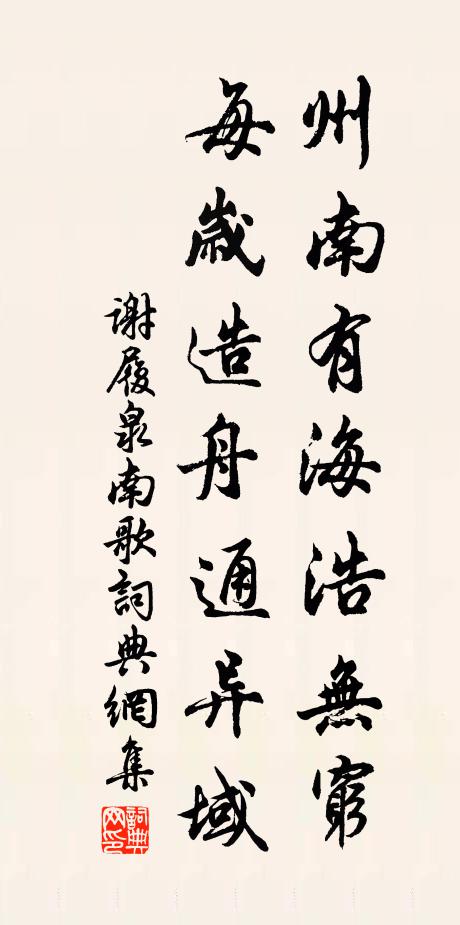 州南有海浩無窮
每歲造舟通异域
謝履泉南歌詞典網集
詞典
网印